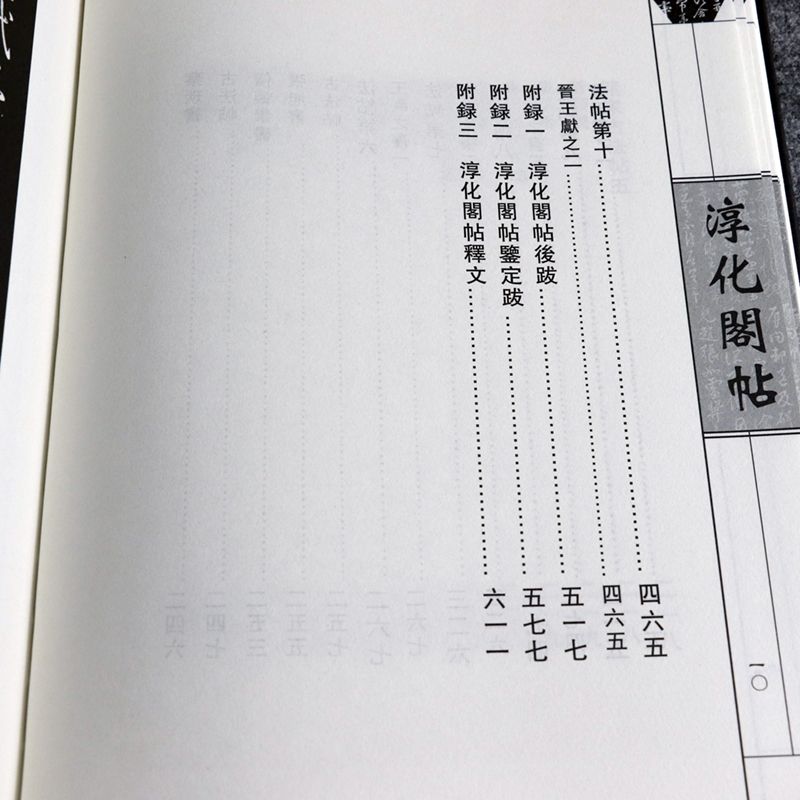 淳化閣帖
一〇
法帖第十 四六五
晉王獻之二 四六五
附録一 淳化閣帖後跋 五一七
附録二 淳化閣帖鑒定跋 五七七
附録三 淳化閣帖釋文 六一一